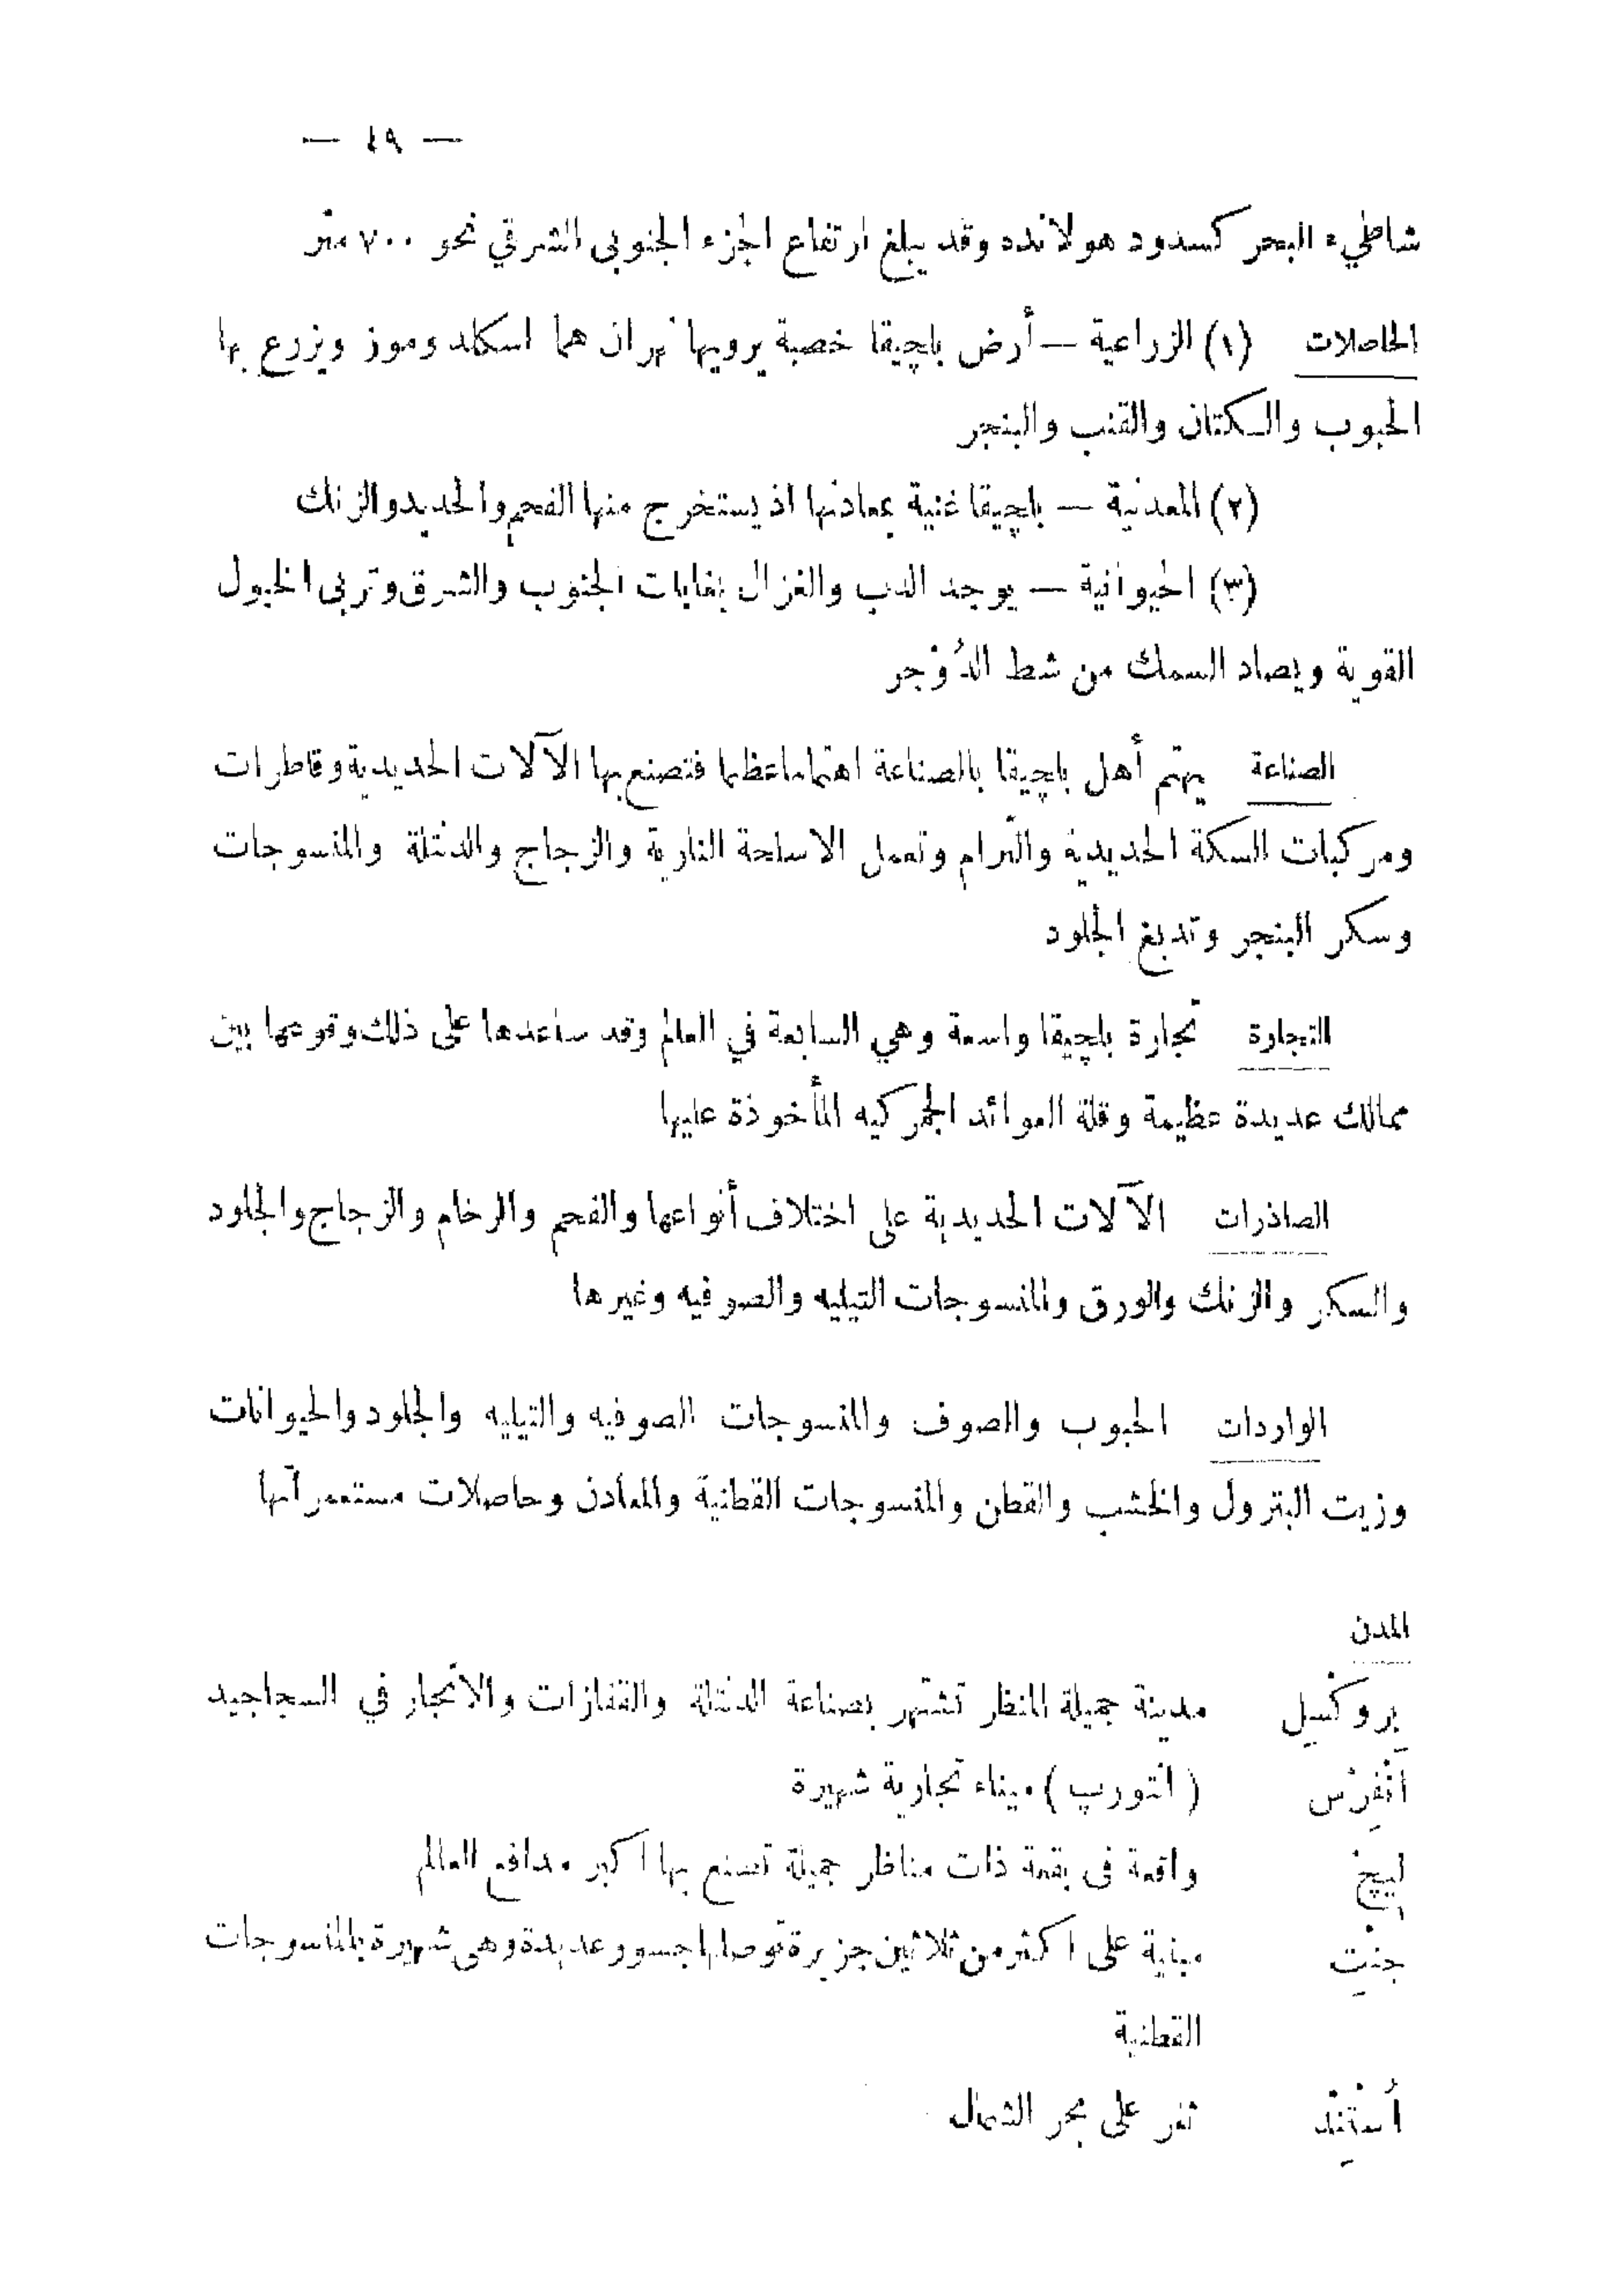 — ٤٩ —
شاطيء البحر كسدود هولانده وقد يبلغ ارتفاع الجزء الجنوبى الشرقي نحو ٧٠٠ متر
الحاصلات (١) الزراعية — أرض بلچيقا خصبة يرويها نهران هما اسكلد وموز ويزرع بها
الحبوب والكتان والقنب والبنجر
(٢) المعدنية — بلچيقا غنية بمعادنها اذ يستخرج منها الفحم والحديد والزنك
(٣) الحيوانية — يوجد الدب والغزال بغابات الجنوب والشرق وتربى الخيول
القوية ويصاد السمك من شط الدُوْجر
الصناعة يهتم أهل بلچيقا بالصناعة اهتماما عظيما فتصنع بها الآلات الحديدية وقاطرات
ومركبات السكة الحديدية والترام وتعمل الاسلحة النارية والزجاج والدنتلة والمنسوجات
وسكر البنجر وتدبغ الجلود
التجارة تجارة بلچيقا واسعة وهي السابعة في العالم وقد ساعدها على ذلك وقوعها بين
ممالك عديدة عظيمة وقلة العوائد الجمركيه المأخوذة عليها
الصادرات الآلات الحديدية على اختلاف أنواعها والفحم والرخام والزجاج والجلود
والسكر والزنك والورق والمنسوجات التيليه والصوفيه وغيرها
الواردات الحبوب والصوف والمنسوجات الصوفيه والتيليه والجلود والحيوانات
وزيت البترول والخشب والقطن والمنسوجات القطنية والمعادن وحاصلات مستعمراتها
المدن
بروكسل مدينة جميلة المنظر تشتهر بصناعة الدنتلة والقفازات والاتجار في السجاجيد
أَنْفِرْس ( انتورپ ) ميناء تجارية شهيرة
لييچ واقعة فى بقعة ذات مناظر جميلة تصنع بها اكبر مدافع العالم
جنْتِ مبنية على اكثر من ثلاثين جزيرة توصلها جسور عديدة وهى شهيرة بالمنسوجات
القطنية
أُسْتِنْد ثغر على بحر الشمال